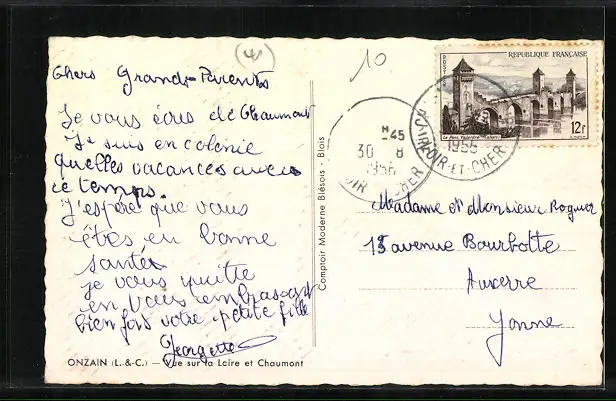 (41)
10
Chers Grands-Parents
Je vous écris de Chaumont
Je suis en colonie
quelles vacances avec
ce temps.
J'espère que vous
êtes en bonne
santée
je vous quitte
en vous embrassant
bien fors votre petite fille
Georgette
ONZAIN (L.-&-C.) — Vue sur la Loire et Chaumont
Comptoir Moderne Blésois - Blois
RÉPUBLIQUE FRANÇAISE
POSTES
Le Pont Valentré - Cahors
12f
H 45
30 8
1956
LOIR-ET-CHER
1956
LOIR-ET-CHER
Madame et Monsieur Roguer
15 avenue Bourbotte
Auxerre
Yonne